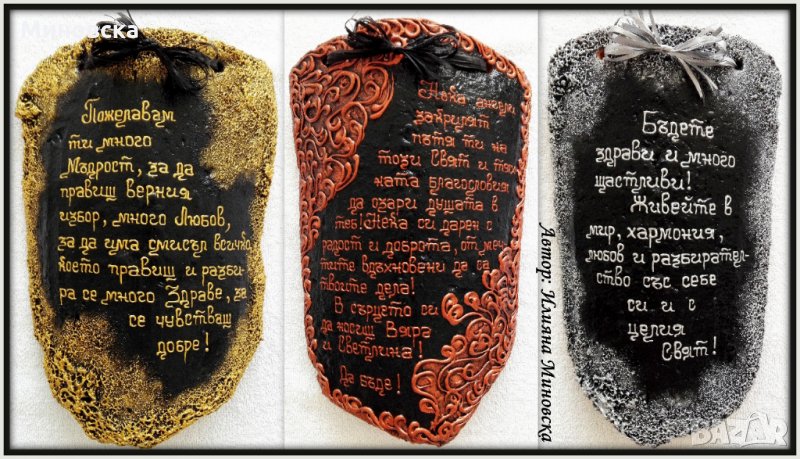 Миновска
Пожелавам
ти много
Мъдрост, за да
правиш верния
избор, много Любов,
за да има смисъл всичко,
което правиш и разби-
ра се много Здраве, за
се чувстваш
добре!
Нека ангели
закрилят
пътя ти на
този Свят и тях
ната благословия
да озари душата в
теб! Нека си дарен с
радост и доброта, от меч
тите вдъхновени да са
твоите дела!
В сърцето си
да носиш Вяра
и Светлина!
Да бъде!
Автор: Илияна Миновска
Бъдете
здрави и много
щастливи!
Живейте в
мир, хармония,
любов и разбирател-
ство със себе
си и с
целия
Свят!
BAZAR